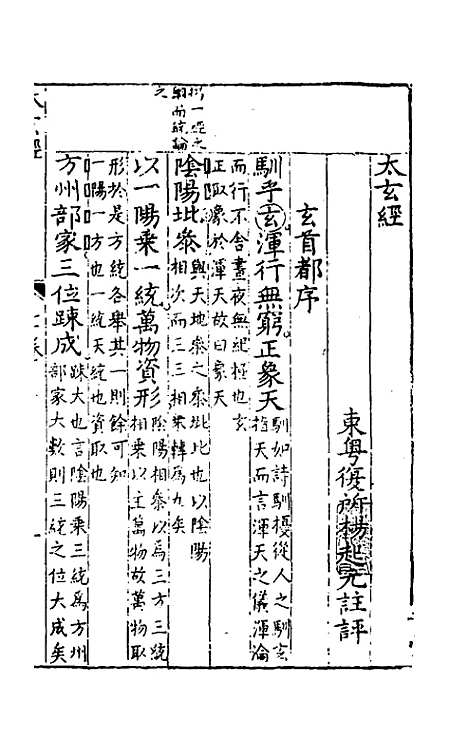 太玄經
東粵復所楊起元註評
玄首都序
馴乎玄渾行無窮正象天
馴如詩馴擾從人之馴玄
指天而言渾天之儀渾淪
而行不舍晝夜無紀極也玄
正取象於渾天故曰象天
陰陽妣參
與天地參之參妣比也以陰陽
相次而三三相乘轉爲九矣
以一陽乘一統萬物資形
陰陽相參以爲三方三統
相乘以生萬物故萬物取
形於是方統各舉其一則餘可知
一陽一方也一統天統也資取也
方州部家三位踈成
踈大也言陰陽乘三統爲方州
部家大數則三統之位大成矣